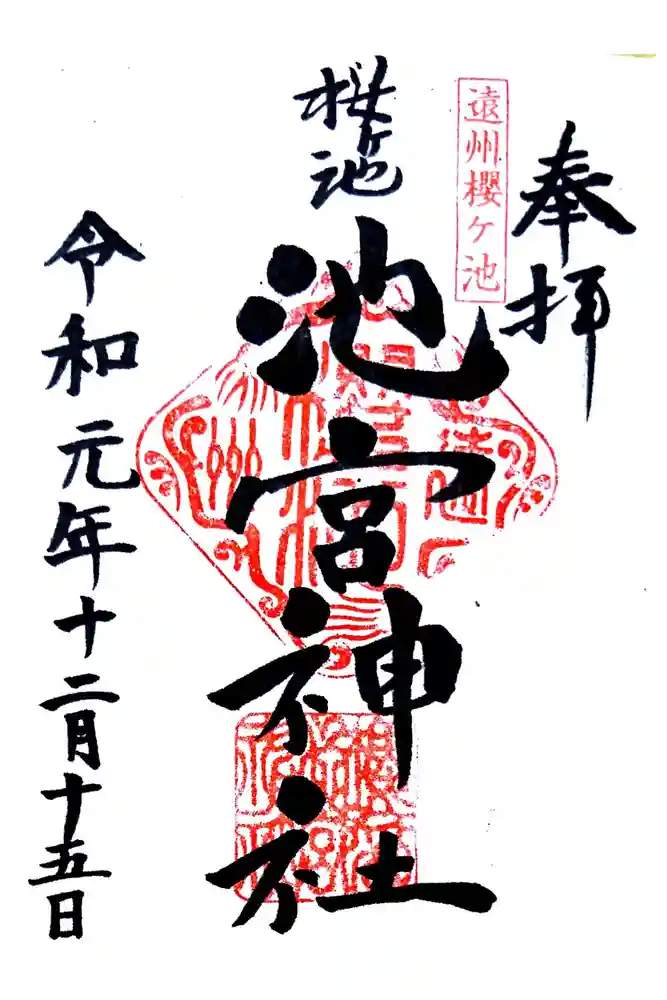 奉拝
遠州櫻ケ池
桜ケ池
池宮神社
令和元年十二月十五日